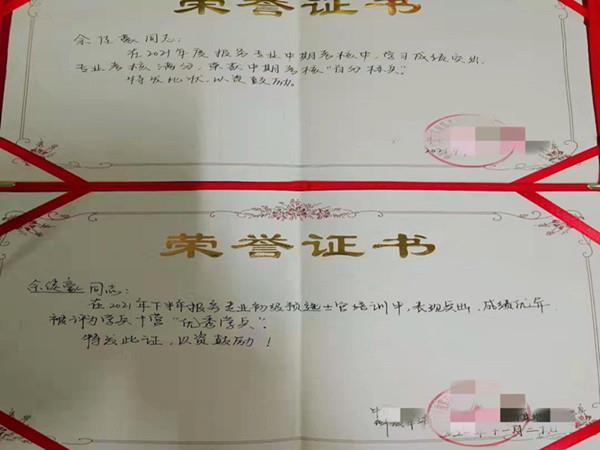 荣誉证书
同志:
在2021年度报务专业中期考核中,学习成绩突出,
专业考核满分,荣获中期考核"百分标兵".
特发此状,以资鼓励。
荣誉证书
同志:
在2021年下半年报务专业初级预选士官培训中,表现突出,成绩优异
被评为学兵十营"优秀学兵".
特发此证,以资鼓励!
十一月二十